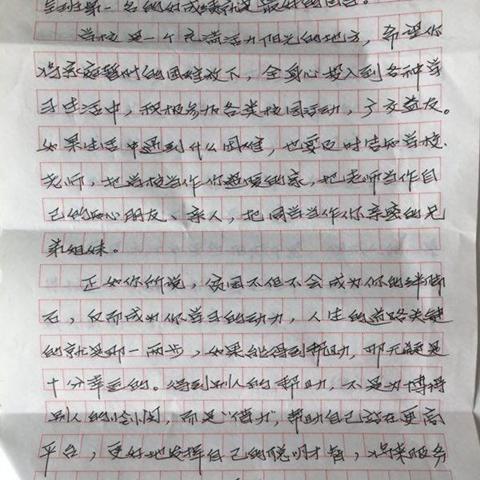 全班第一名的好成绩就是最好的回答。
学校是一个充满活力阳光的地方，希望你
将家庭暂时的困难放下，全身心投入到各种学
习生活中，积极参加各类校园活动，广交益友。
如果生活中遇到什么困难，也要及时告知学校、
老师，把学校当作你温暖的家，把老师当作自
己的知心朋友、亲人，把同学当作你亲密的兄
弟姐妹。
正如你所说，贫困不但不会成为你的绊脚
石，反而成为你学习的动力，人生的道路关键
的就是那一两步，如果能得到帮助，那无疑是
十分幸运的。得到别人的帮助，不是为博得
别人的同，而是“借力”，帮助自己站在更高
平台，更好地发挥自己的聪明才智，将来服务